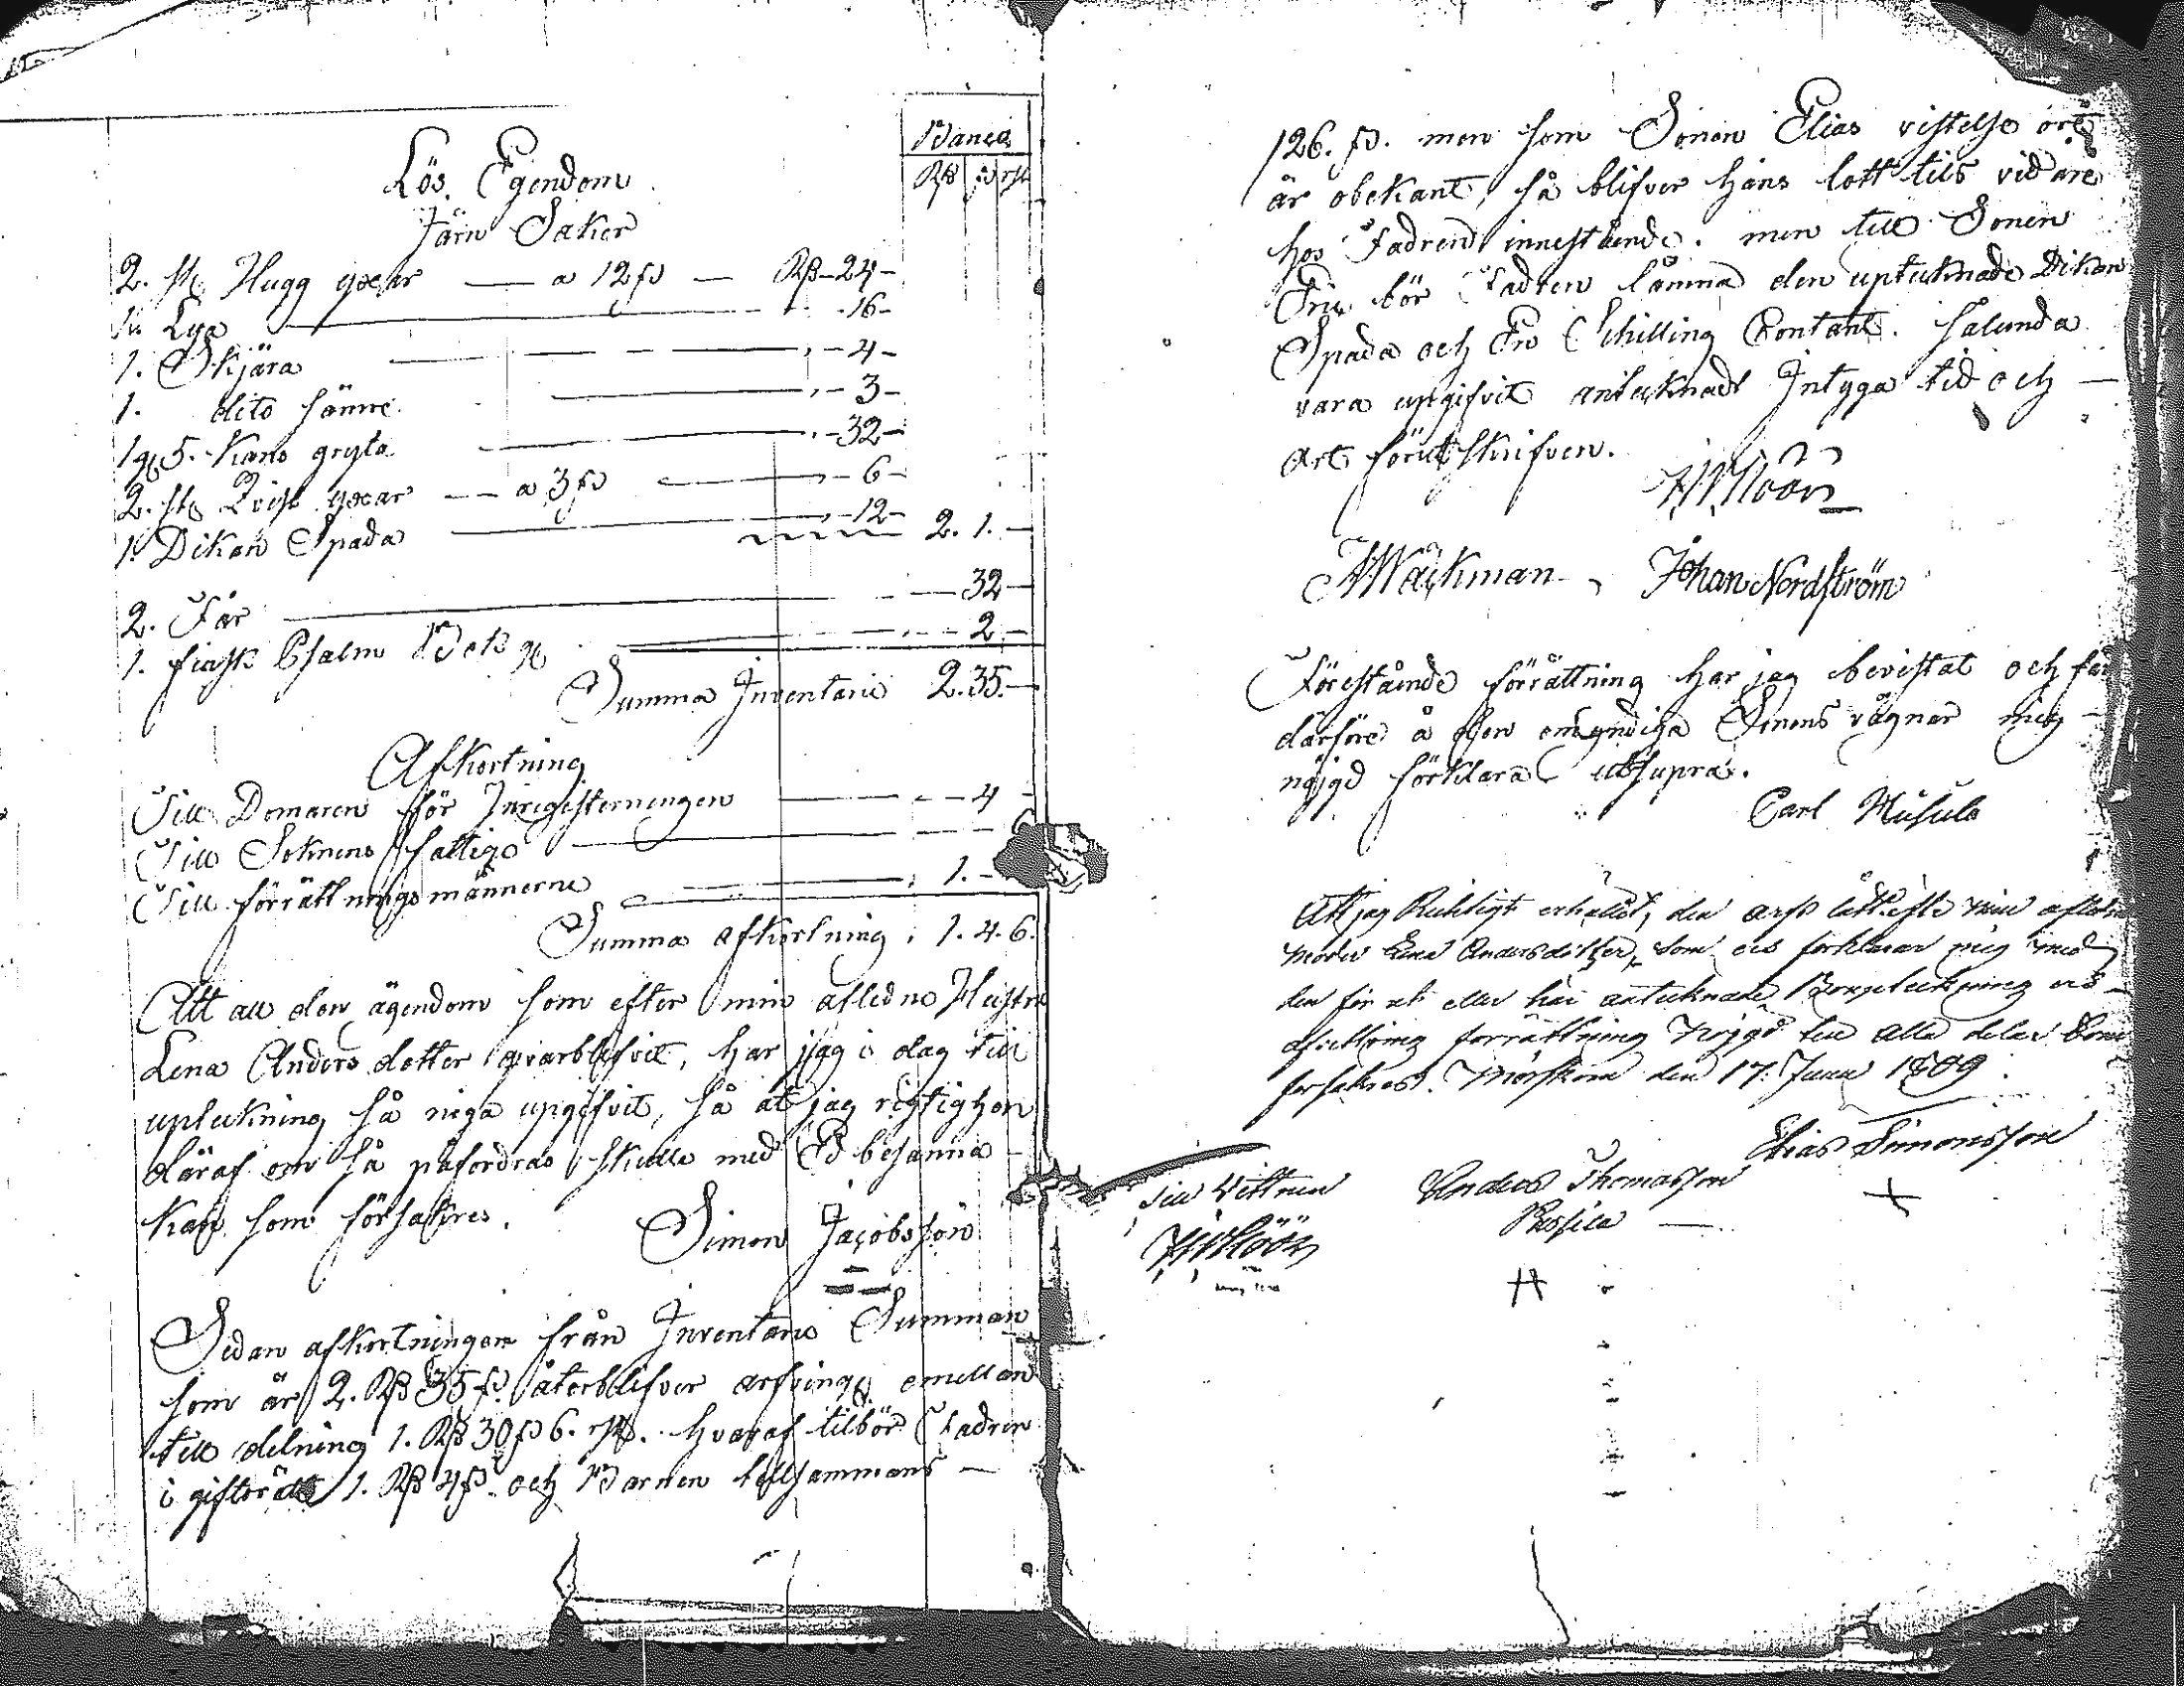 Banco
Lös Egendom
Järn Saker
2. st. Hugg yxar — a 12 ß — Rß - 24 -
1 Lya - 16 -
1. Skjära - 4 -
1. dito sämre - 3 -
1 5. Kans gryta - 32 -
2. st. Qvist yxar — a 3 ß - 6 -
1. Dikan Spada - 12 - 2. 1. -
2. Får - 32 -
1. finsk Psalm Bok - 2 -
Summa Inventarie 2. 35. -
Afkortning
Till Domaren för Inregisterningen - 4 -
Till Soknens fattige
Till förrättningsmännerne 1. -
Summa afkortning 1. 4. 6.
Att all den ägendom som efter min afledne Hustru
Lena Anders dotter qvarblifvit, har jag i dag till
upteckning så noga upgifvit, så at jag rigtigheten
däraf om så påfordras skulle med Ed besanna
kan som försakres.
Simon Jacobsson
Sedan afkortningen från Inventarie Summan
som är 2. Rß 35 ß återblifver arfvinge emellan
till delning 1. Rß 30 ß 6. rst. hvaraf tilbör Fadren
i giftorätt 1. Rß 4 ß och Barnen tillsammans —
126. ß. men som Sonen Elias vistelse ort
är obekant, så blifver hans lott tils vidare
hos Fadren innestående. men till Sonen
bör Fadren lämna den uptecknade Dikan
Spada och En Schilling Contant. Sålunda
vara upgifvit antecknadt Intyga tid och —
ort förut skrifven.
Wäckman Johan Nordström
Förestående förrättning har jag bevistat och får
därföre å den omyndiga Sonens vägnar mig —
nöjgd förklara ut supra.
Carl
Att jag Richtigt erhållit, den arfs lott efter min aflidne
moder Lena Andersdotter, som os förklarar mig med
den för at eller här antecknade Bouptekning och
förrättning nöjgd till alla delar som
forsakres. Mörskom den 17. Junii 1809.
Elias Simonsson
Till Vittnen Anders Thomasson